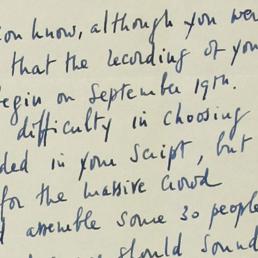 you know, although you were
that the recording of you
begin on September 19th.
difficulty in choosing
ded in your script, but
for the massive crowd
assemble some 30 people
should sound